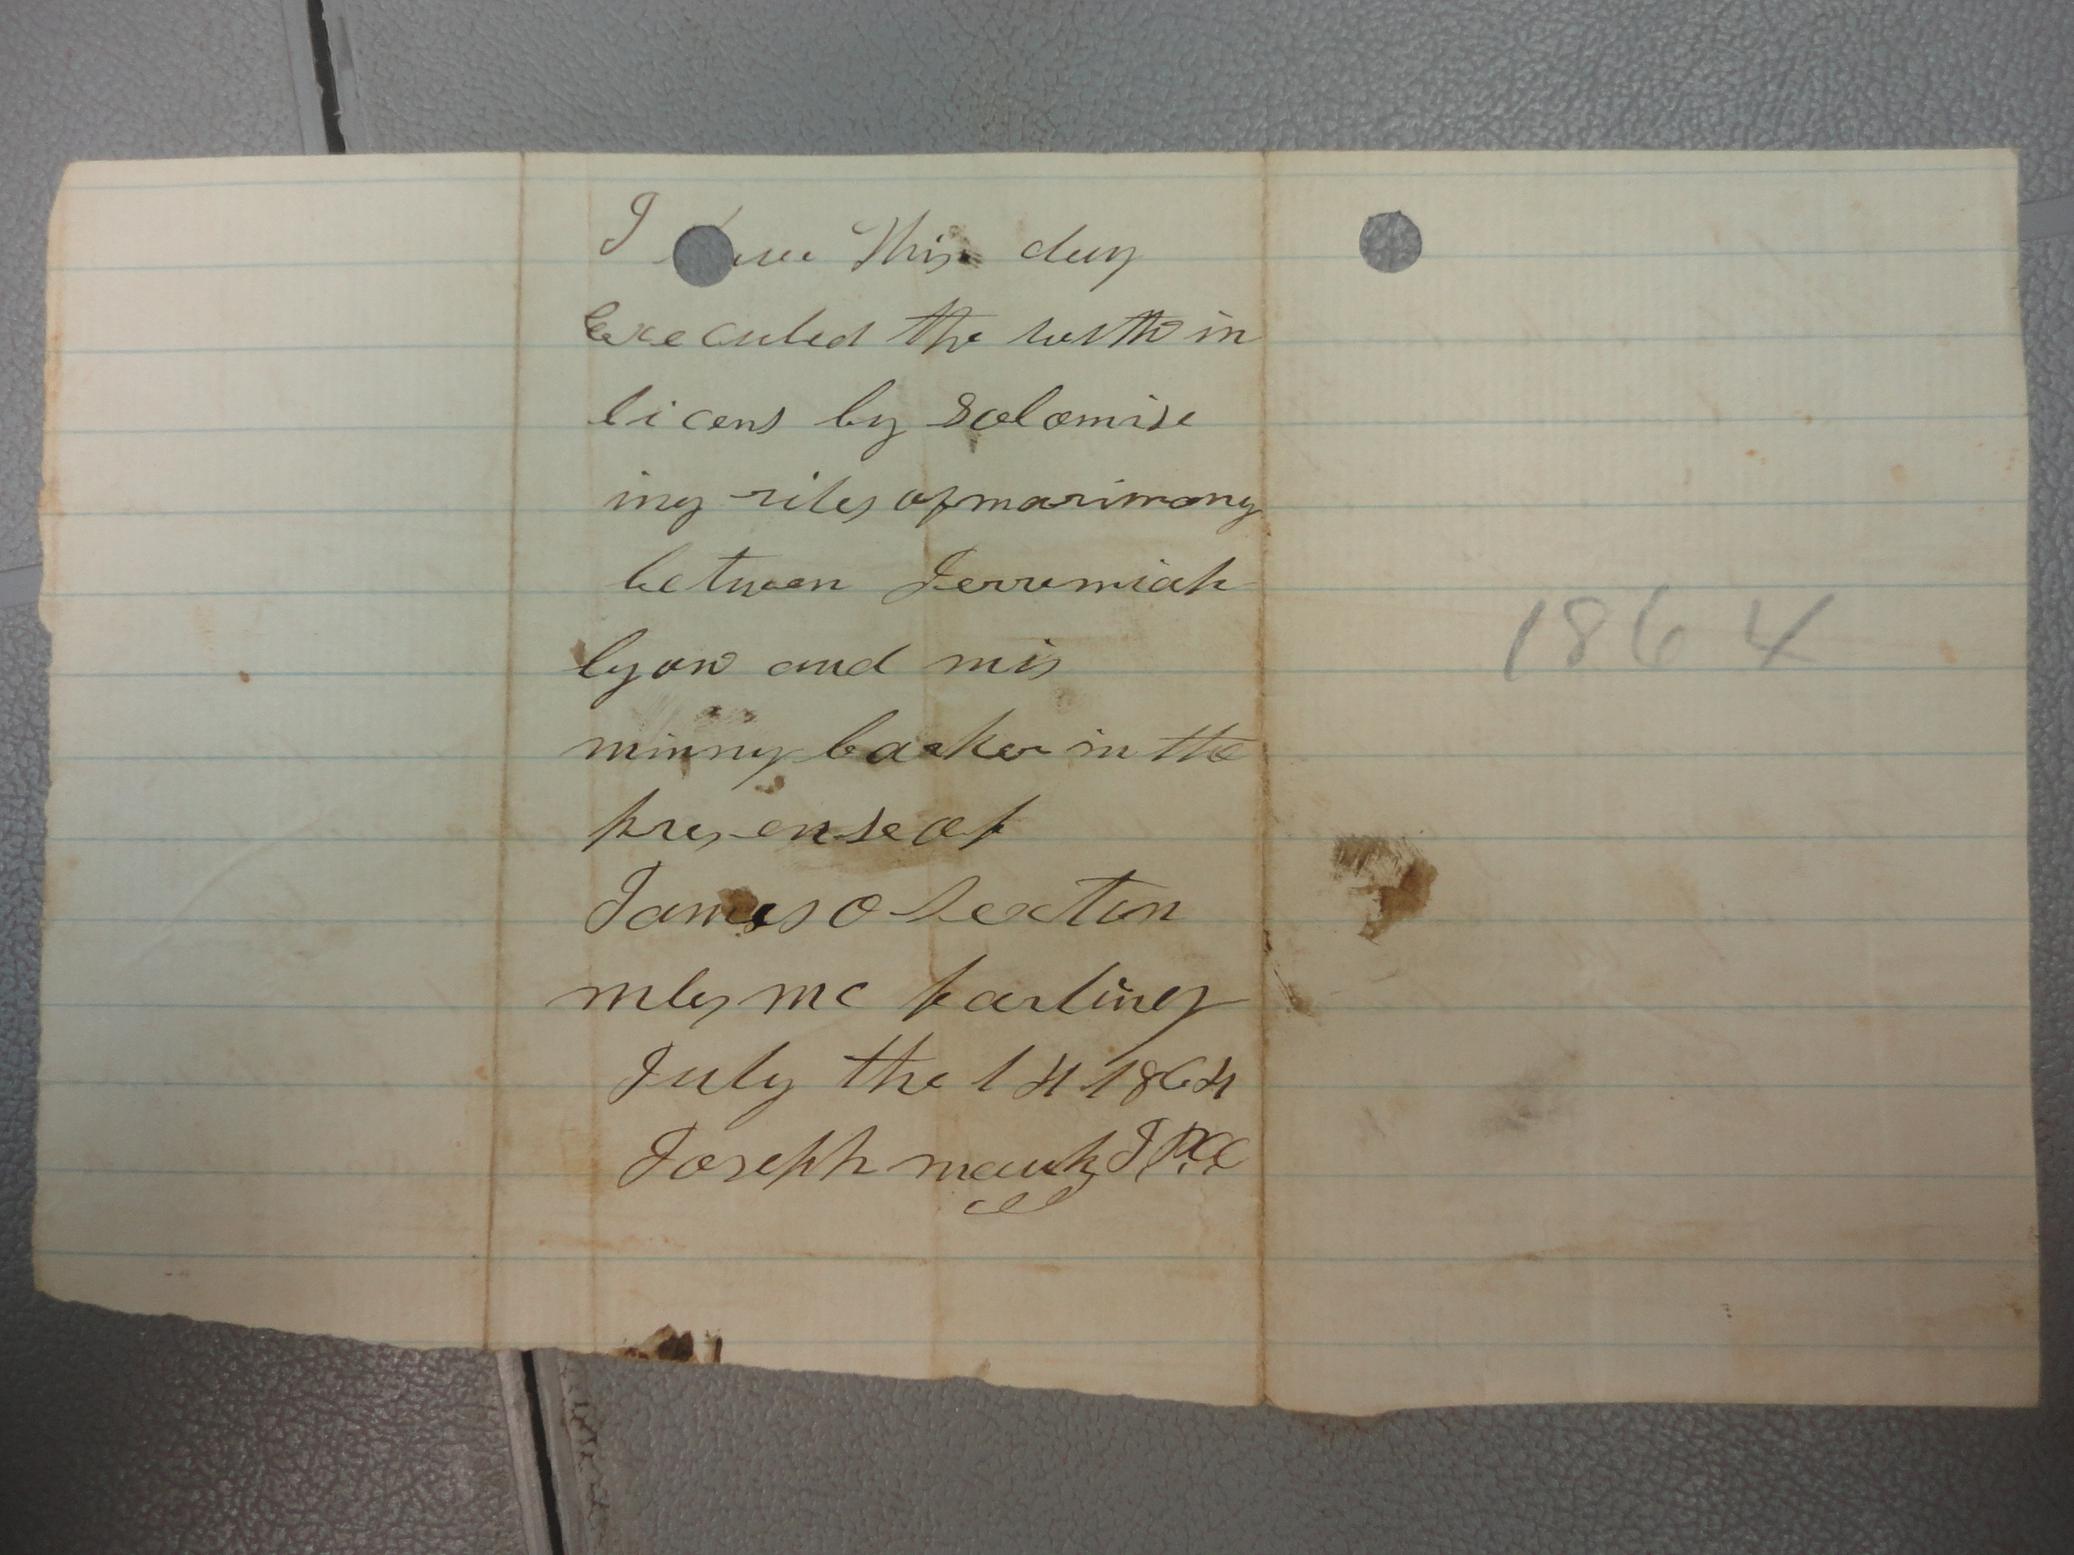 I have this day
Executed the with in
licens by Solomise
ing rites of marimony
between Jerremiah
lyon and mis
minny barker in the
presense of
James O Sexton
mc farliney
July the 14 1864
Joseph mauk J P.C.C
1864